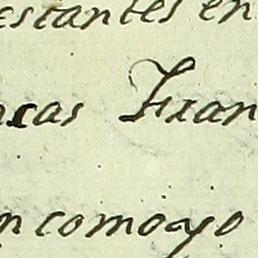 estantes en
cas Fran
n como yo